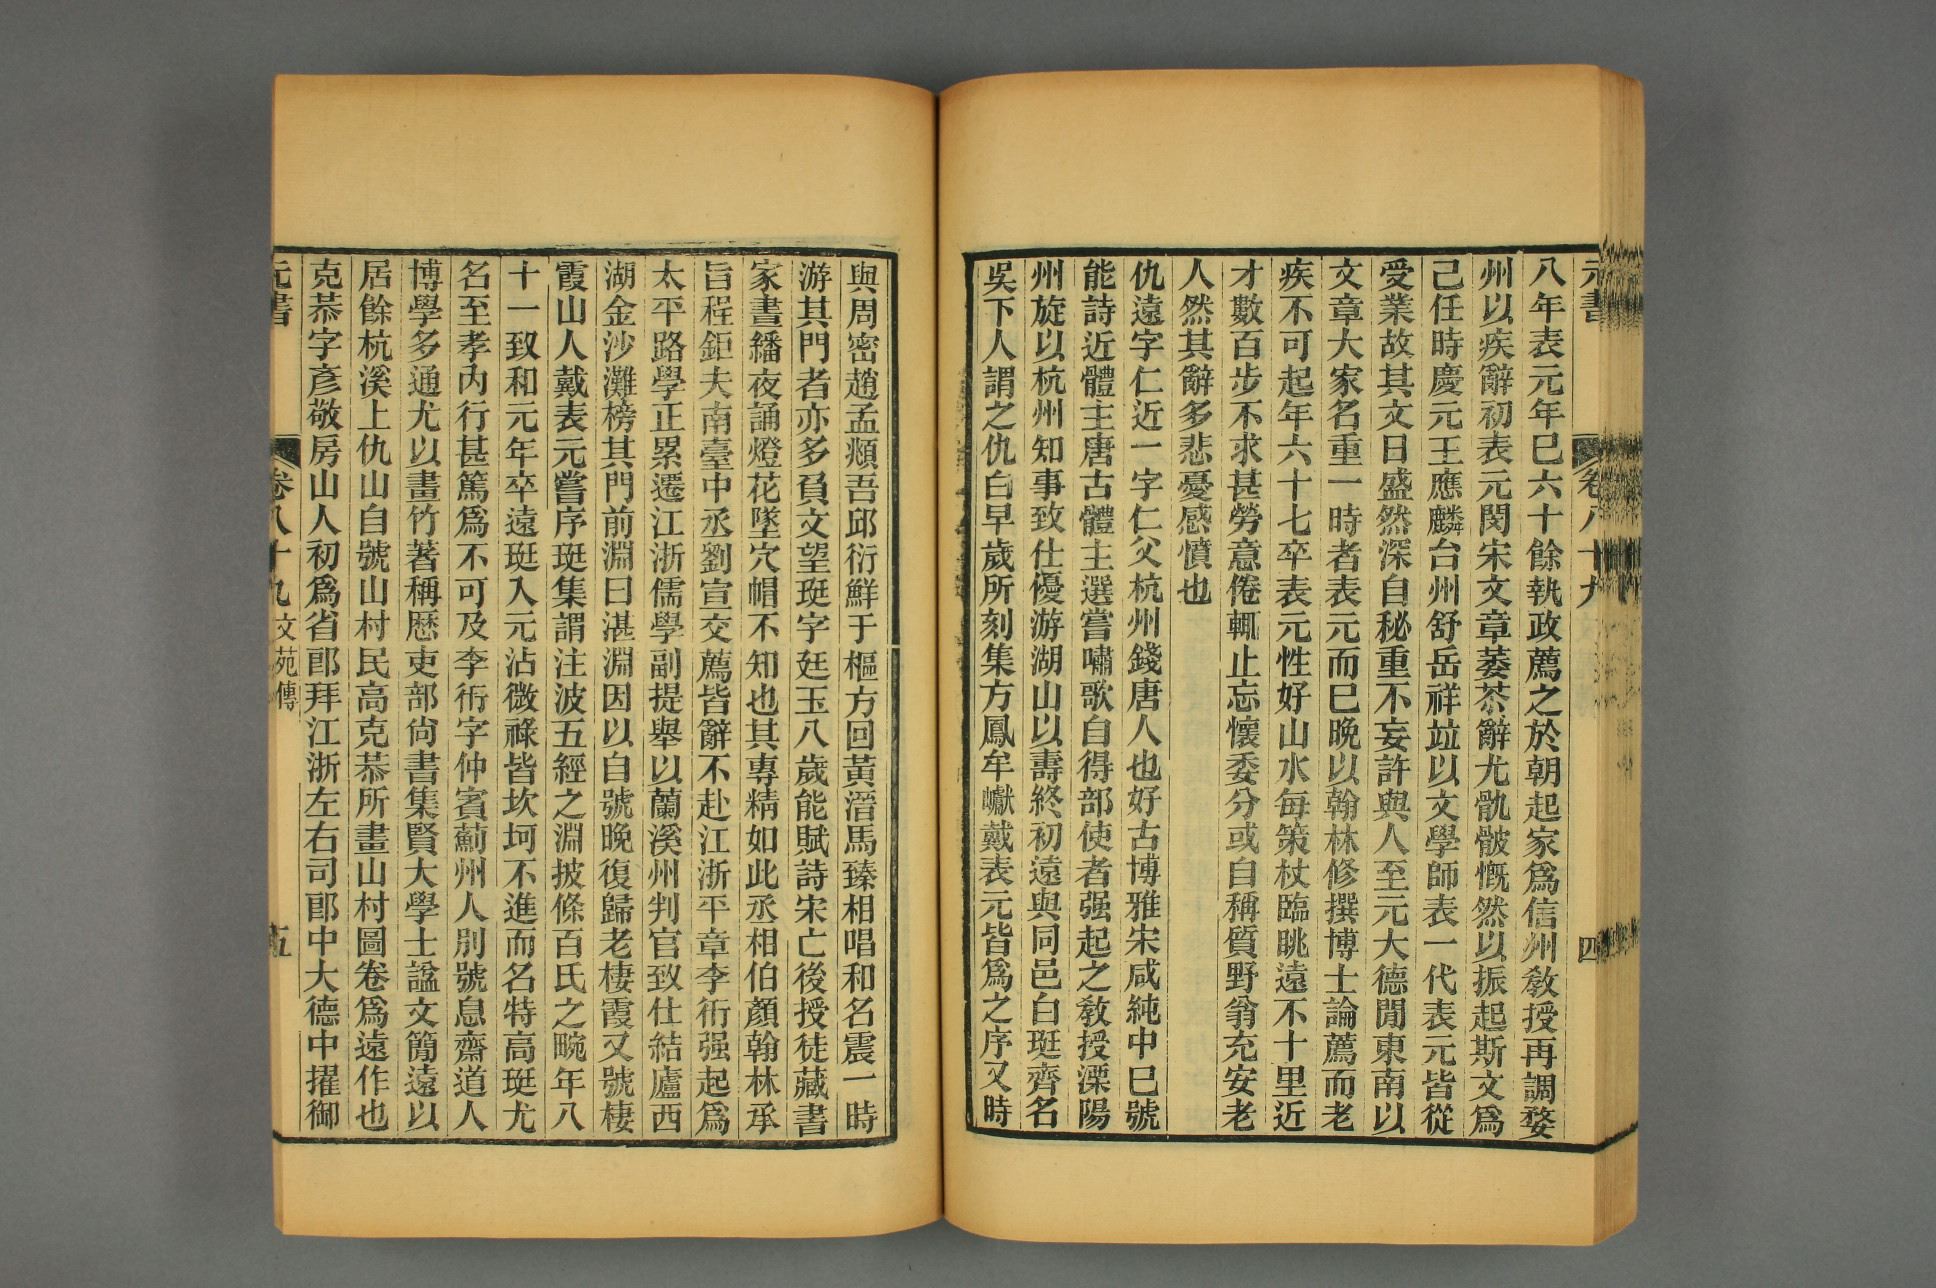 元書
卷八十九
四
八年表元年已六十餘執政薦之於朝起家爲信州敎授再調婺
州以疾辭初表元閔宋文章萎苶辭尤骫骳慨然以振起斯文爲
己任時慶元王應麟台州舒岳祥竝以文學師表一代表元皆從
受業故其文日盛然深自秘重不妄許與人至元大德閒東南以
文章大家名重一時者表元而已晚以翰林修撰博士論薦而老
疾不可起年六十七卒表元性好山水每策杖臨眺遠不十里近
才數百步不求甚勞意倦輒止忘懷委分或自稱質野翁充安老
人然其辭多悲憂感憤也
仇遠字仁近一字仁父杭州錢唐人也好古博雅宋咸純中已號
能詩近體主唐古體主選嘗嘯歌自得部使者强起之敎授溧陽
州旋以杭州知事致仕優游湖山以壽終初遠與同邑白珽齊名
吳下人謂之仇白早歲所刻集方鳳牟巘戴表元皆爲之序又時
與周密趙孟頫吾邱衍鮮于樞方回黃溍馬臻相唱和名震一時
游其門者亦多負文望珽字廷玉八歲能賦詩宋亡後授徒藏書
家晝繙夜誦燈花墜穴帽不知也其專精如此丞相伯顏翰林承
旨程鉅夫南臺中丞劉宣交薦皆辭不赴江浙平章李衎强起爲
太平路學正累遷江浙儒學副提舉以蘭溪州判官致仕結廬西
湖金沙灘榜其門前淵曰湛淵因以自號晚復歸老棲霞又號棲
霞山人戴表元嘗序珽集謂注波五經之淵披條百氏之畹年八
十一致和元年卒遠珽入元沾微祿皆坎坷不進而名特高珽尤
名至孝內行甚篤爲不可及李衎字仲賓薊州人別號息齋道人
博學多通尤以畫竹著稱歷吏部尙書集賢大學士諡文簡遠以
居餘杭溪上仇山自號山村民高克恭所畫山村圖卷爲遠作也
克恭字彥敬房山人初爲省郎拜江浙左右司郎中大德中擢御
元書
卷八十九文苑傳
五